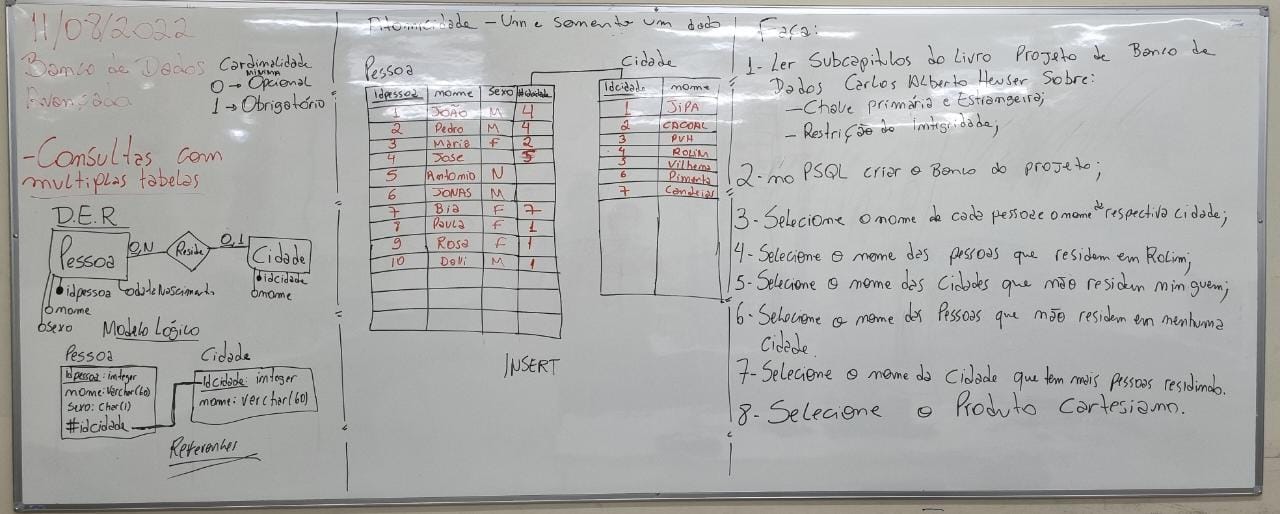 11/08/2022
Banco de Dados
Avançado
Cardinalidade
mínima
0 → Opcional
1 → Obrigatório
-Consultas com
multiplas tabelas
D.E.R
Pessoa 0,N Reside 0,1 Cidade
idpessoa
nome
sexo
idcidade
nome
Modelo Lógico
Pessoa
idpessoa: integer
nome: Varchar(60)
sexo: char(1)
#idcidade
Cidade
idcidade: integer
nome: Verchar(60)
Atomicidade - Um e somente um dado
Pessoa
idpessoa nome sexo #idcidade
1 JOÃO M 4
2 Pedro M 4
3 Maria F 2
4 Jose 5
5 Antonio N
6 JONAS M
7 Bia F 7
Paula F 1
9 Rosa F 1
10 Davi M 1
INSERT
Cidade
Idcidade nome
1 JIPA
2 CACOAL
3 PVH
4 ROLIM
5 Vilhena
6 Pimenta
7 Candeias
Faça:
1- Ler Subcapitulos do Livro Projeto de Banco de
Dados Carlos Alberto Heuser Sobre:
- Chave primária e Estrangeira;
- Restrição de integridade;
2- no PSQL criar o Banco do projeto;
3- Selecione o nome de cada pessoa e o nome de respectiva cidade;
4- Selecione o nome das pessoas que residem em Rolim;
5- Selecione o nome das Cidades que não residem ninguem;
6- Selecione o nome das Pessoas que não residem em nenhuma
cidade.
7- Selecione o nome da Cidade que tem mais pessoas residindo.
8- Selecione o Produto Cartesiano.